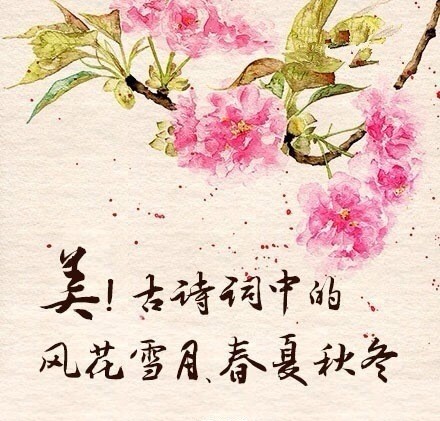 美！古诗词中的
风花雪月、春夏秋冬